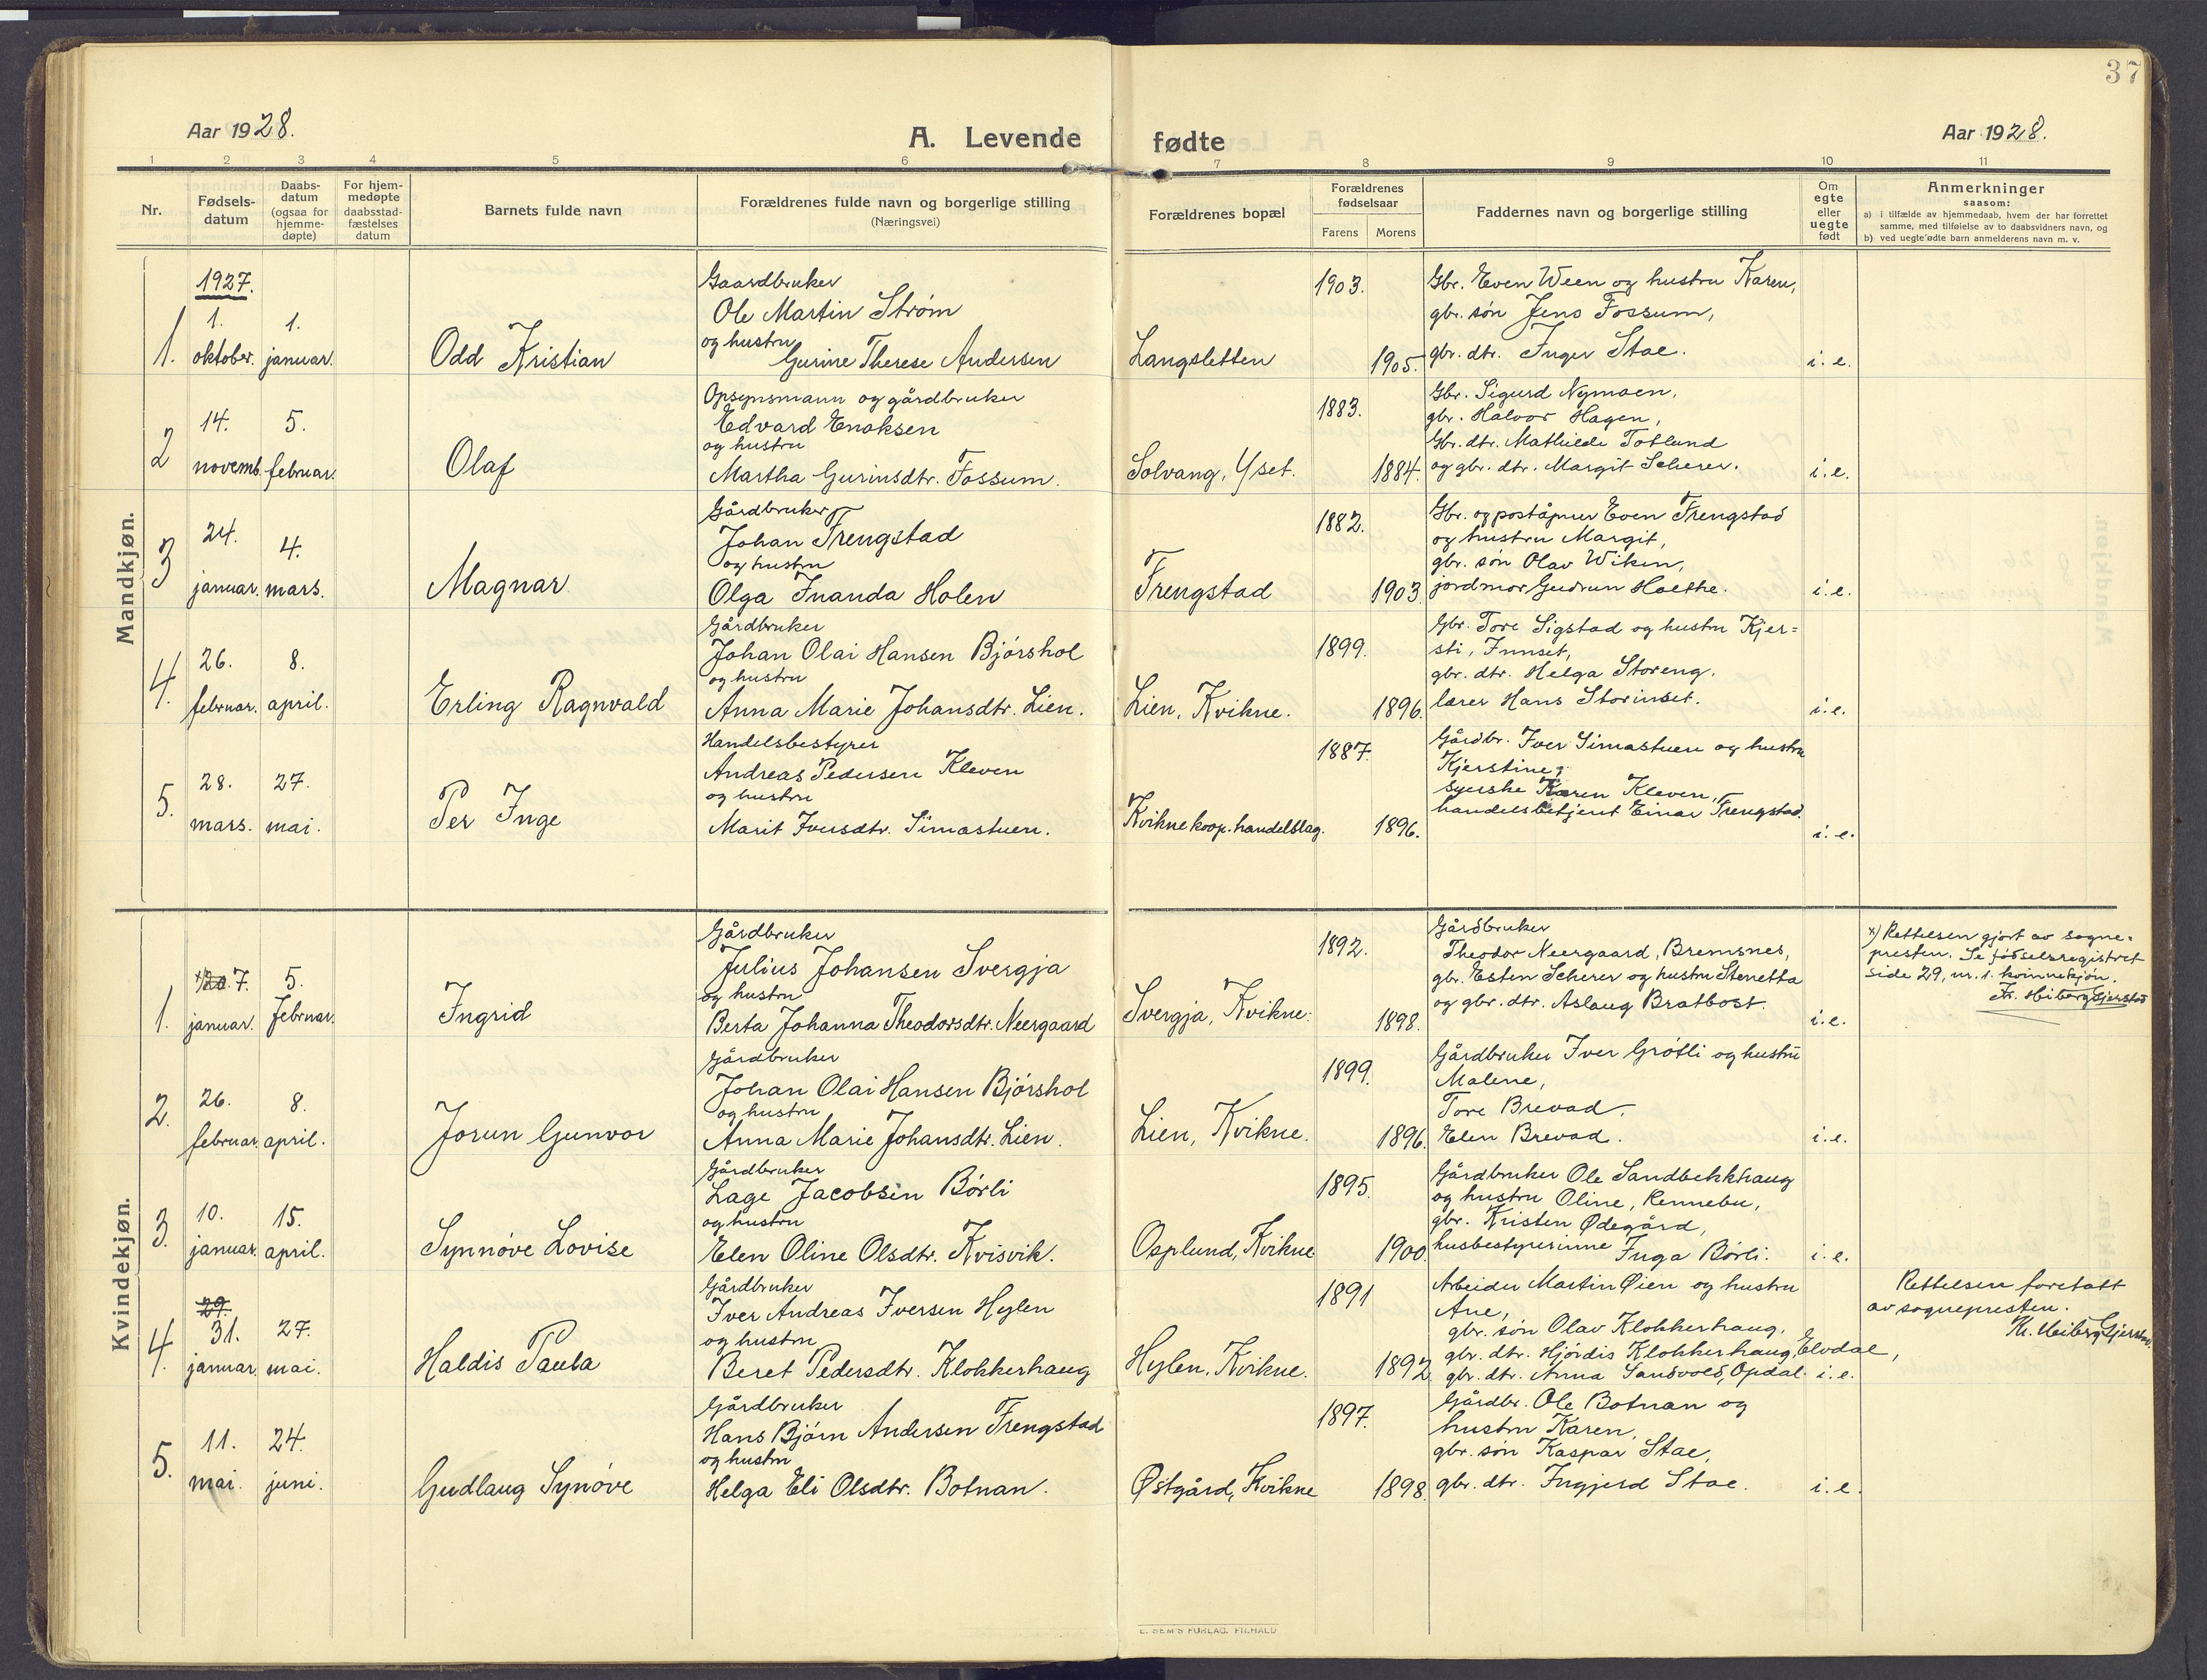 37
Aar 1928.
A. Levende fødte
Aar 1928.
1 2 3 4 5 6 7 8 9 10 11
Nr.
Fødsels-
datum
Daabs-
datum
(ogsaa for
hjemme-
døpte)
For hjem-
medøpte
daabsstad-
fæstelses
datum
Barnets fulde navn
Forældrenes fulde navn og borgerlige stilling
(Næringsvei)
Forældrenes bopæl
Forældrenes
fødselsaar
Farens Morens
Faddernes navn og borgerlige stilling
Om
egte
eller
uegte
født
Anmerkninger
saasom:
a) i tilfælde av hjemmedaab, hvem der har forrettet
samme, med tilføielse av to daabsvidners navn, og
b) ved uegte fødte barn anmelderens navn m. v.
Mandkjøn.
1927.
1.
1.
oktober.
1.
januar.
Odd Kristian
Gaardbruker
Ole Martin Strøm
og hustru
Gurine Therese Andersen
Langsletten
1903.
1905.
Gbr. Even Ween og hustru Karen,
gbr. søn Jens Fossum,
gbr. dtr. Inger Stae.
i. e.
2
14.
novemb.
5.
februar.
Olaf
Opsynsmann og gårdbruker
Edvard Enoksen
og hustru
Martha Gurinsdtr. Fossum.
Solvang, Y/set.
1883.
1884.
Gbr. Sigurd Nymoen,
gbr. Halvor Hagen,
Gbr. dtr. Mathilde Totlund
og gbr. dtr. Margit Scherer.
i. e.
3
24.
januar.
4.
mars.
Magnar
Gårdbruker
Johan Frengstad
og hustru
Olga Inanda Holen
Frengstad
1882.
1903
Gbr. og poståpner Even Frengstad
og hustru Margit,
gbr. søn Olav Wiken,
jordmor Gudrun Hoethe.
i. e.
4.
26.
februar.
8.
april.
Erling Ragnvald
Gårdbruker
Johan Olai Hansen Bjørshol
og hustru
Anna Marie Johansdtr. Lien.
Lien, Kvikne.
1899.
1896.
Gbr. Tore Sigstad og hustru Kjer=
sti, Innset,
gbr. dtr. Helga Storeng.
lærer Hans Storinset.
i. e.
5.
28.
mars.
27.
mai.
Per Inge
Handelsbestyrer
Andreas Pedersen Kleven
og hustru
Marit Iversdtr. Simastuen.
Kvikne koop. handelslag.
1887.
1896.
Gårdbr. Iver Simastuen og hustru
Kjerstine,
syerske Karen Kleven,
handelsbetjent Einar Frengstad.
i. e.
Kvindekjøn.
1.
x) 20 7.
januar.
5.
februar.
Ingrid
Gårdbruker
Julius Johansen Svergja
og hustru
Berta Johanna Theodorsdtr. Neergaard
Svergja, Kvikne.
1892.
1898.
Gårdbruker
Theodor Neergaard, Bremsnes,
gbr. Esten Scherer og hustru Stenetta
og gbr. dtr. Aslaug Bratbost.
i. e.
x) Rettelsen gjort av sogne-
presten. Se fødselsregistret
side 29, nr. 1. kvinnekjøn.
Kr. Heiberg Gjerstad
2.
26.
februar.
8.
april.
Jorun Gunvor
Gårdbruker
Johan Olai Hansen Bjørshol
og hustru
Anna Marie Johansdtr. Lien.
Lien, Kvikne.
1899.
1896.
Gårdbruker Iver Grøtli og hustru
Malene,
Tore Brevad.
Elen Brevad.
i. e.
3.
10.
januar.
15.
april.
Synnøve Lovise
Gårdbruker
Lage Jacobsen Børli
og hustru
Elen Oline Olsdtr. Kvisvik.
Osplund, Kvikne
1895.
1900.
Gårdbruker Ole Sandbekkhaug
og hustru Oline, Rennebu,
gbr. Kristen Ødegård,
husbestyrerinne Inga Børli.
i. e.
4.
29.
31.
januar.
27.
mai.
Haldis Paula
Gårdbruker
Iver Andreas Iversen Hylen
og hustru
Beret Pedersdtr. Klokkerhaug
Hylen, Kvikne.
1891
1892
Arbeider Martin Øien og hustru
Ane,
gbr. søn Olav Klokkerhaug.
gbr. dtr. Hjørdis Klokkerhaug, Elvdal,
gbr. dtr. Anna Sandvold, Opdal.
i. e.
Rettelsen foretatt
av sognepresten.
Kr. Heiberg Gjerstad.
5.
11.
mai.
24.
juni.
Gudlaug Synøve
Gårdbruker
Hans Bjørn Andersen Frengstad
og hustru
Helga Eli Olsdtr. Botnan.
Østgård, Kvikne
1897.
1898.
Gårdbr. Ole Botnan og
hustru Karen,
gbr. søn Kaspar Stae,
gbr. dtr. Ingjerd Stae.
i. e.
E. SEM'S FORLAG. FR.HALD